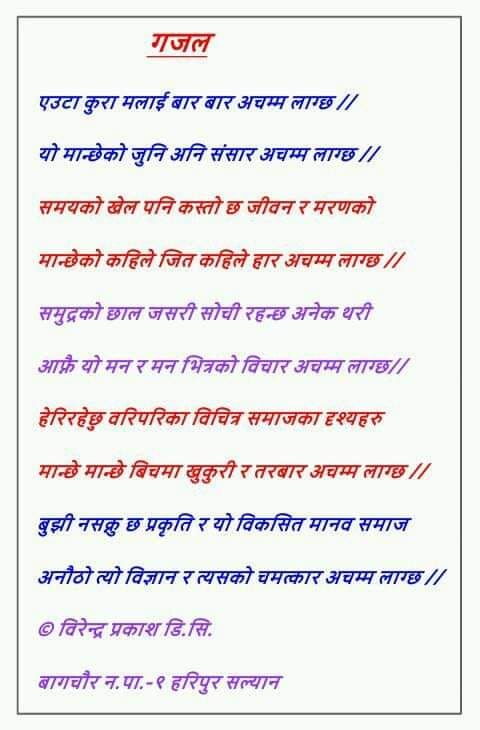 गजल
एउटा कुरा मलाई बार बार अचम्म लाग्छ //
यो मान्छेको जुनि अनि संसार अचम्म लाग्छ //
समयको खेल पनि कस्तो छ जीवन र मरणको
मान्छेको कहिले जित कहिले हार अचम्म लाग्छ //
समुद्रको छाल जसरी सोची रहन्छ अनेक थरी
आफ्नै यो मन र मन भित्रको विचार अचम्म लाग्छ//
हेरिरहेछु वरिपरिका विचित्र समाजका दृश्यहरु
मान्छे मान्छे बिचमा खुकुरी र तरबार अचम्म लाग्छ //
बुझी नसक्नु छ प्रकृति र यो विकसित मानव समाज
अनौठो त्यो विज्ञान र त्यसको चमत्कार अचम्म लाग्छ //
© विरेन्द्र प्रकाश डि.सि.
बागचौर न.पा.-१ हरिपुर सल्यान